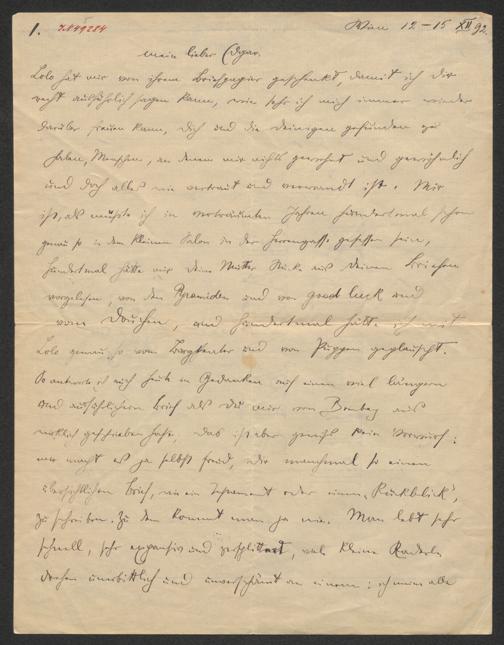 1. I.N. 49284 Wien 12–15 XII 92.
mein lieber Edgar.
Lolo hat mir von ihrem Briefpapier geschenkt, damit ich dir
recht ausführlich sagen kann, wie sehr ich mich immer wieder
darüber freuen kann, dich und die deinigen gefunden zu
haben, Menschen, an denen mir nichts gewohnt und gewöhnlich
und doch alles wie vertraut und verwandt ist. Mir
ist, als müsste ich in verträumten Jahren hundertmal schon
genau so in dem kleinen Salon in der Herrengasse gesessen sein,
hundertmal hätte mir deine Mutter Stücke aus deinen Briefen
vorgelesen, von den Pyramiden und von good luck und
vom Douchen, und hundertmal hätte ich mit
Lolo genau so vom Burgtheater und von Puppen geplauscht.
So antworte ich auch heute in Gedanken auf einen viel längern
und ausführlichern Brief als du mir von Bombay aus
wirklich geschrieben hast, das ist aber gewiss kein Vorwurf:
mir macht es ja selbst Freud, nur manchmal so einen
übersichtlichen Brief, wie ein Testament oder einen „Rückblick",
zu schreiben. Zu dem kommt man ja nie. Man lebt sehr
schnell, sehr expansiv und zersplittert, viele kleine Raderln
drehen unerbittlich und unverschämt an einem; ich muss alle